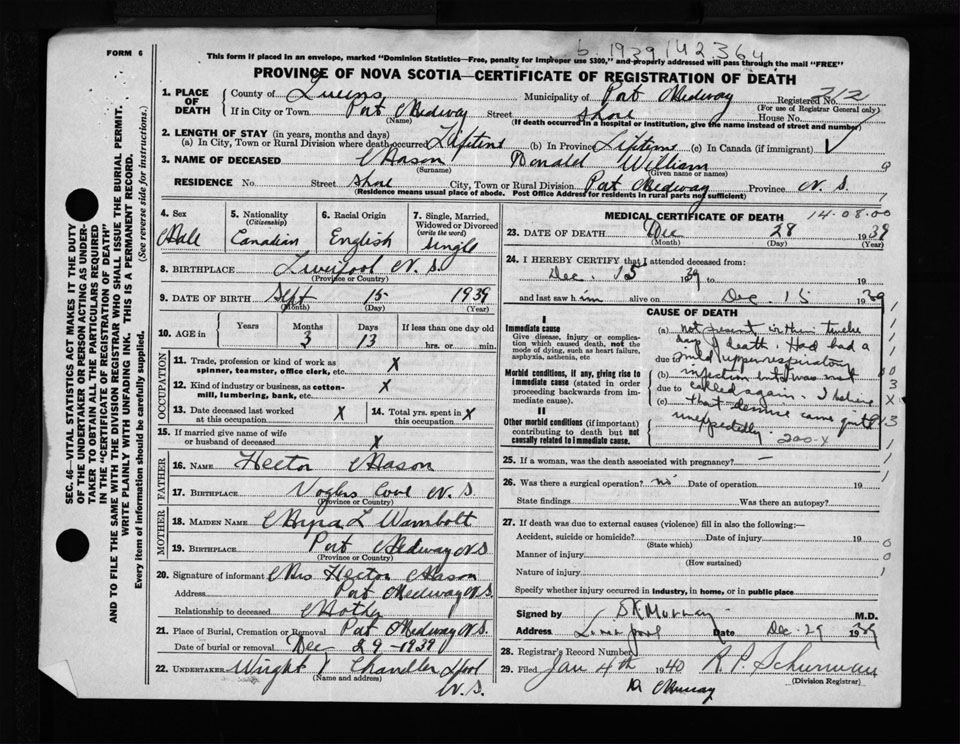 FORM 6
b. 1939 142364
This form if placed in an envelope, marked "Dominion Statistics—Free, penalty for improper use $300," and properly addressed will pass through the mail "FREE"
PROVINCE OF NOVA SCOTIA—CERTIFICATE OF REGISTRATION OF DEATH
1. PLACE OF DEATH County of Queens Municipality of Port Medway Registered No. 212
(For use of Registrar General only)
If in City or Town Port Medway Street Shore House No.
(Name) (If death occurred in a hospital or institution, give the name instead of street and number)
2. LENGTH OF STAY (in years, months and days)
(a) In City, Town or Rural Division where death occurred Lifetime (b) In Province Lifetime (c) In Canada (if immigrant)
3. NAME OF DECEASED Mason Donald William
(Surname) (Given name or names)
RESIDENCE No. Street Shore City, Town or Rural Division Port Medway Province N. S.
(Residence means usual place of abode. Post Office Address for residents in rural parts not sufficient)
4. Sex Male
5. Nationality (Citizenship) Canadian
6. Racial Origin English
7. Single, Married, Widowed or Divorced (write the word) Single
8. BIRTHPLACE Liverpool N. S.
(Province or Country)
9. DATE OF BIRTH Sept 15 1939
(Month) (Day) (Year)
10. AGE in Years Months 3 Days 13 If less than one day hrs. or min.
OCCUPATION
11. Trade, profession or kind of work as spinner, teamster, office clerk, etc. X
12. Kind of industry or business, as cotton-mill, lumbering, bank, etc. X
13. Date deceased last worked at this occupation X 14. Total yrs. spent in this occupation X
15. If married give name of wife or husband of deceased X
FATHER
16. NAME Hector Mason
17. BIRTHPLACE Voglers Cove N. S.
(Province or Country)
MOTHER
18. MAIDEN NAME Myra L Wambolt
19. BIRTHPLACE Port Medway N. S.
(Province or Country)
20. Signature of informant Mrs Hector Mason
Address Port Medway N. S.
Relationship to deceased Mother
21. Place of Burial, Cremation or Removal Port Medway N. S.
Date of burial or removal Dec 29 - 1939
22. UNDERTAKER Wright Chandler Lpool N. S.
(Name and address)
MEDICAL CERTIFICATE OF DEATH 14.08.00
23. DATE OF DEATH Dec 28 1939
(Month) (Day) (Year)
24. I HEREBY CERTIFY that I attended deceased from:
Dec. 15 1939
and last saw him alive on Dec. 15 1939
CAUSE OF DEATH
I
Immediate cause
Give disease, injury or complication which caused death, not the mode of dying, such as heart failure, asphyxia, asthenia, etc
Morbid conditions, if any, giving rise to immediate cause (stated in order proceeding backwards from immediate cause).
II
Other morbid conditions (if important) contributing to death but not causally related to immediate cause.
(a) not present in then twelve
days of death. Had had a
due to mild upper respiratory
(b) infection but I was not
due to called again. I believe
(c) that demise came quite
unexpectedly. 200-X
25. If a woman, was the death associated with pregnancy? —
26. Was there a surgical operation? no Date of operation 19
State findings Was there an autopsy?
27. If death was due to external causes (violence) fill in also the following:—
Accident, suicide or homicide? Date of injury 19
(State which)
Manner of injury
(How sustained)
Nature of injury
Specify whether injury occurred in industry, in home, or in public place
Signed by M.D.
Address Liverpool Date Dec. 29 1939
28. Registrar's Record Number
29. Filed Jan 4th 1940 R. P. Schurman
(Division Registrar)
Murray
SEC. 46—VITAL STATISTICS ACT MAKES IT THE DUTY
OF THE UNDERTAKER OR PERSON ACTING AS UNDER-
TAKER TO OBTAIN ALL THE PARTICULARS REQUIRED
IN THE "CERTIFICATE OF REGISTRATION OF DEATH"
AND TO FILE THE SAME WITH THE DIVISION REGISTRAR WHO SHALL ISSUE THE BURIAL PERMIT.
WRITE PLAINLY WITH UNFADING INK. THIS IS A PERMANENT RECORD.
Every item of information should be carefully supplied. (See reverse side for instructions.)